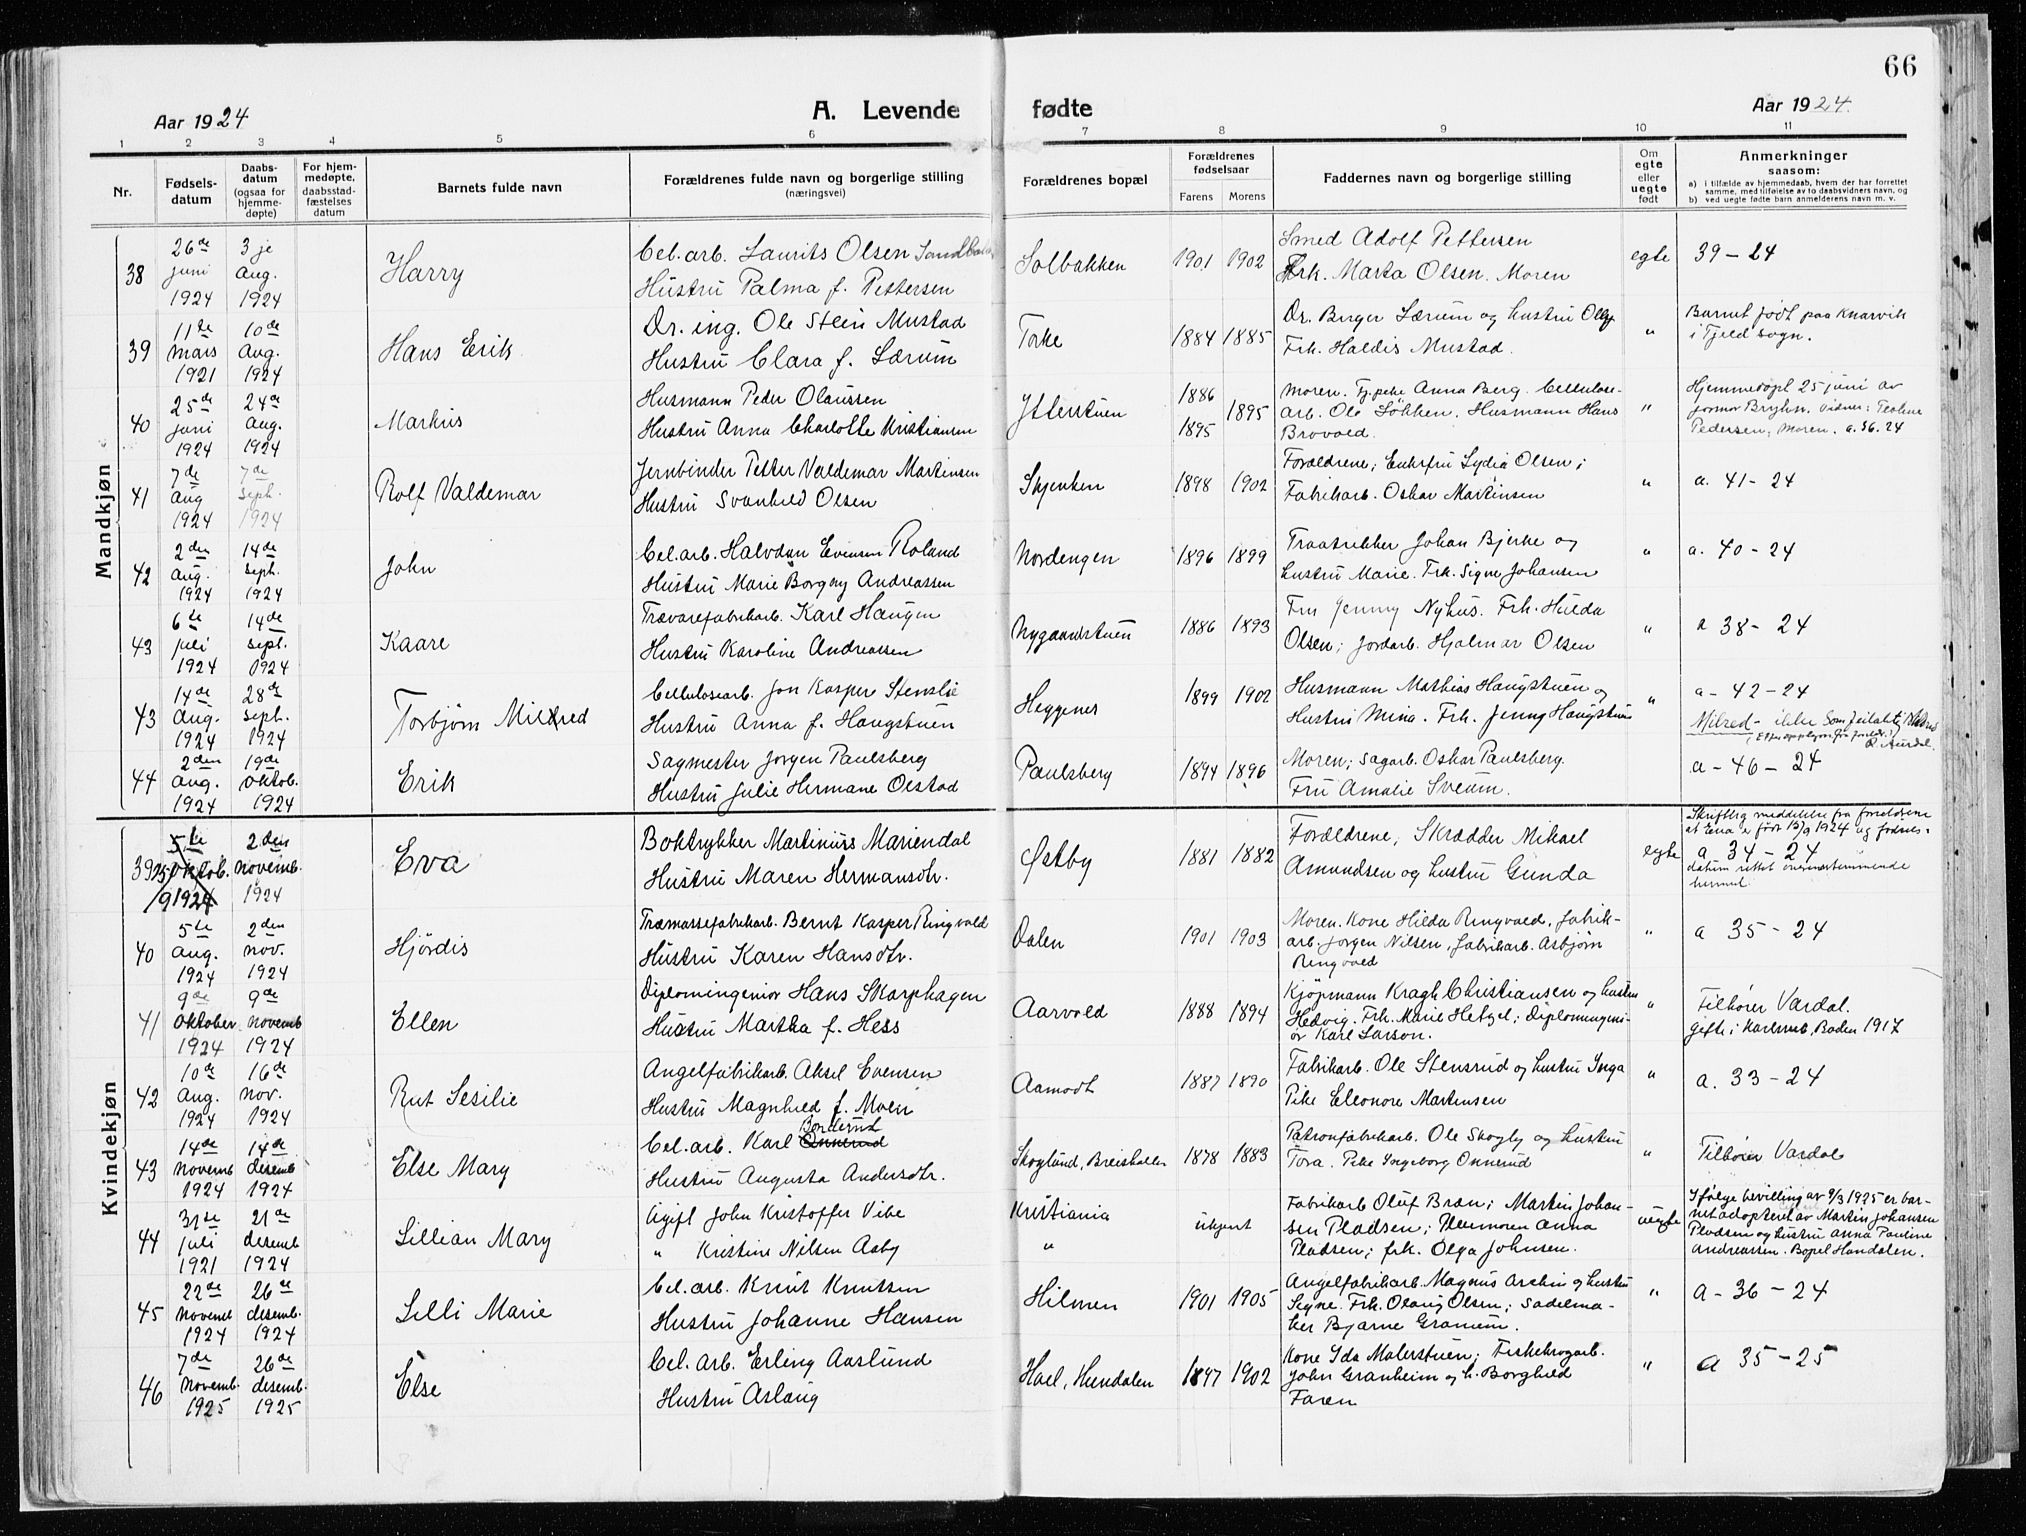 66
Aar 1924
A. Levende fødte
Aar 1924.
1 2 3 4 5 6 7 8 9 10 11
Nr.
Fødsels-
datum
Daabs-
datum
(ogsaa for
hjemme-
døpte)
For hjem-
medøpte,
daabsstad-
fæstelses
datum
Barnets fulde navn
Forældrenes fulde navn og borgerlige stilling
(næringsvei)
Forældrenes bopæl
Forældrenes
fødselsaar
Farens Morens
Faddernes navn og borgerlige stilling
Om
egte
eller
uegte
født
Anmerkninger
saasom:
a) i tilfælde av hjemmedaab, hvem der har forrettet
samme, med tilføielse av to daabsvidners navn, og
b) ved uegte fødte barn anmelderens navn m. v.
Mandkjøn
38
26de
juni
1924
3je
Aug.
1924
Harry
Cel.arb. Laurits Olsen
Hustru Palma f. Pettersen
Solbakken
1901 1902
Smed Adolf Pettersen
Frk. Marta Olsen. Moren
egte
39-24
39
11te
mars
1921
10de
Aug.
1924
Hans Erik
Dr. ing. Ole Stein Mustad
Hustru Clara f. Lærum
Torke
1884 1885
Dr. Birger Lærum og hustru Olly
Frk. Haldis Mustad.
"
Barnet født paa Knarvik
i Tjeld sogn.
40
25de
juni
1924
24de
Aug.
1924
Markus
Husmann Peder Olaussen
Hustru Anna Charlotte Kristiansen
Ytterstuen
1886
1895 1895
Moren. Tj.peke Anna Berg. Cellulose-
arb. Ole Løkken. Husmann Hans
Brovold.
"
Hjemmedøpt 25 juni av
jormor Bryhn. Vidner:
Pedersen, Moren. a. 36. 24
41
7de
Aug
1924
7de
Sept.
1924
Rolf Valdemar
Jernbinder Petter Valdemar Martinsen
Hustru Svanhild Olsen
Skjenken
1898 1902
Forældrene; Enkefru Lydia Olsen;
Fabrikarb. Oskar Martinsen
"
a. 41-24
42
2den
Aug.
1924
14de
Sept.
1924
John
Cel.arb. Halvdan Evensen Roland
Hustru Marie Borgny Andreassen
Nordengen
1896 1899
Traatrekker Johan Bjerke og
hustru Marie. Frk. Signe Johansen
"
a. 40-24
43
6te
juli
1924
14de
Sept.
1924
Kaare
Trævarefabrikarb. Karl Haugen
Hustru Karoline Andreassen
Nygaardstuen
1886 1893
Fru Jenny Nyhus. Frk. Hulda
Olsen; Jordarb. Hjalmar Olsen
"
a 38-24
43
14de
Aug.
1924
28de
Sept.
1924
Torbjørn Mildred
Cellulosearb. Jon Kasper Stenslie
Hustru Anna f. Haugstuen
Heggenes
1899 1902
Husmann Mathias Haugstuen og
Hustru Mina. Frk. Jenny Haugstuen
"
a-42-24
Milred - ikke som
44
2den
Aug.
1924
19de
Oktob.
1924
Erik
Sagmester Jørgen Paulsberg
Hustru Julie Hermane Olstad
Paulsberg
1894 1896
Moren; Sagarb. Oskar Paulsberg.
Fru Amalie Sveum.
a-46-24
Kvindekjøn
39
5te
Oktob.
1924
2den
Novemb.
1924
Eva
Boktrykker Martinius Mariendal
Hustru Maren Hermansdtr.
Østby
1881 1882
Forældrene, Skrædder Mikael
Amundsen og hustru Gunda
egte
Skriftlig meddelelse fra forældrene
at Eva er født 1924 og fødsels-
a 34-24
datum rettet overensstemmende
hermed
40
5te
Aug.
1924
2den
Nov.
1924
Hjørdis
Træmassefabrikarb. Bernt Kasper Ringvold
Hustru Karen Hansdtr.
Dalen
1901 1903
Moren. Kone Hilda Ringvold, fabrik-
arb. Jørgen Nilsen, fabrikarb. Asbjørn
Ringvold
"
a 35-24
41
9de
Oktober
1924
9de
Novemb
1924
Ellen
Diplomingeniør Hans Skarphagen
Hustru Martha f. Hess
Aarvold
1888 1894
Kjøpmann Kragh Christiansen og hustru
Hedvig. Frk. Marie Hetzel; Diplomingeni-
ør Karl Larson.
"
Tilhører Vardal.
gifte i Karlsrub, Baden 1917
42
10de
Aug.
1924
16de
Nov.
1924
Rut Sesilie
Angelfabrikarb. Aksel Evensen
Hustru Magnhild f. Moen
Aamodt
1887 1890
Fabrikarb. Ole Stensrud og hustru Inga
Pike Eleonore Martinsen
"
a. 33-24
43
14de
Novemb
1924
14de
desemb
1924
Else Mary
Cel. arb. Karl Onnerud
Bonderud
Hustru Augusta Andersdtr.
Skoglund, Breiskallen
1878 1883
Patronfabrikarb. Ole Skogby og hustru
Tora. Pike Ingeborg Onnerud
"
Tilhører Vardal
44
31te
juli
1921
21de
desemb
1924
Lillian Mary
Ugift John Kristoffer Vibe
" Kristine Nilsen Aaby
Kristiania
"
ukjent
Fabrikarb Oluf Bræn; Martin Johan-
sen Pladsen; Husmoren Anna
Pladsen; frk. Olga Johnsen.
uegte
Ifølge bevilling av 9/3 1925 er bar-
net adopteret av Martin Johansen
Pladsen og hustru Anna Pauline
Andreassen. Bopel Hundalen.
45
22de
Novemb
1924
26de
desemb.
1924
Lilli Marie
Cel. arb. Knut Knutsen
Hustru Johanne Hansen
Hilmen
1901 1905
Angelfabrikarb. Magnus Aschim og hustru
Signe. Frk. Olaug Olsen; Sadelma-
ker Bjarne Granum.
"
a-36-24
46
7de
Novemb.
1925
26de
desemb.
1925
Else
Cel. arb. Erling Aaslund
Hustru Aslaug
Hoel, Hundalen
1897 1902
Kone Ida Malerstuen; Fiskekrogarb.
John Granheim og h. Borghild
Faren
"
a 35-25